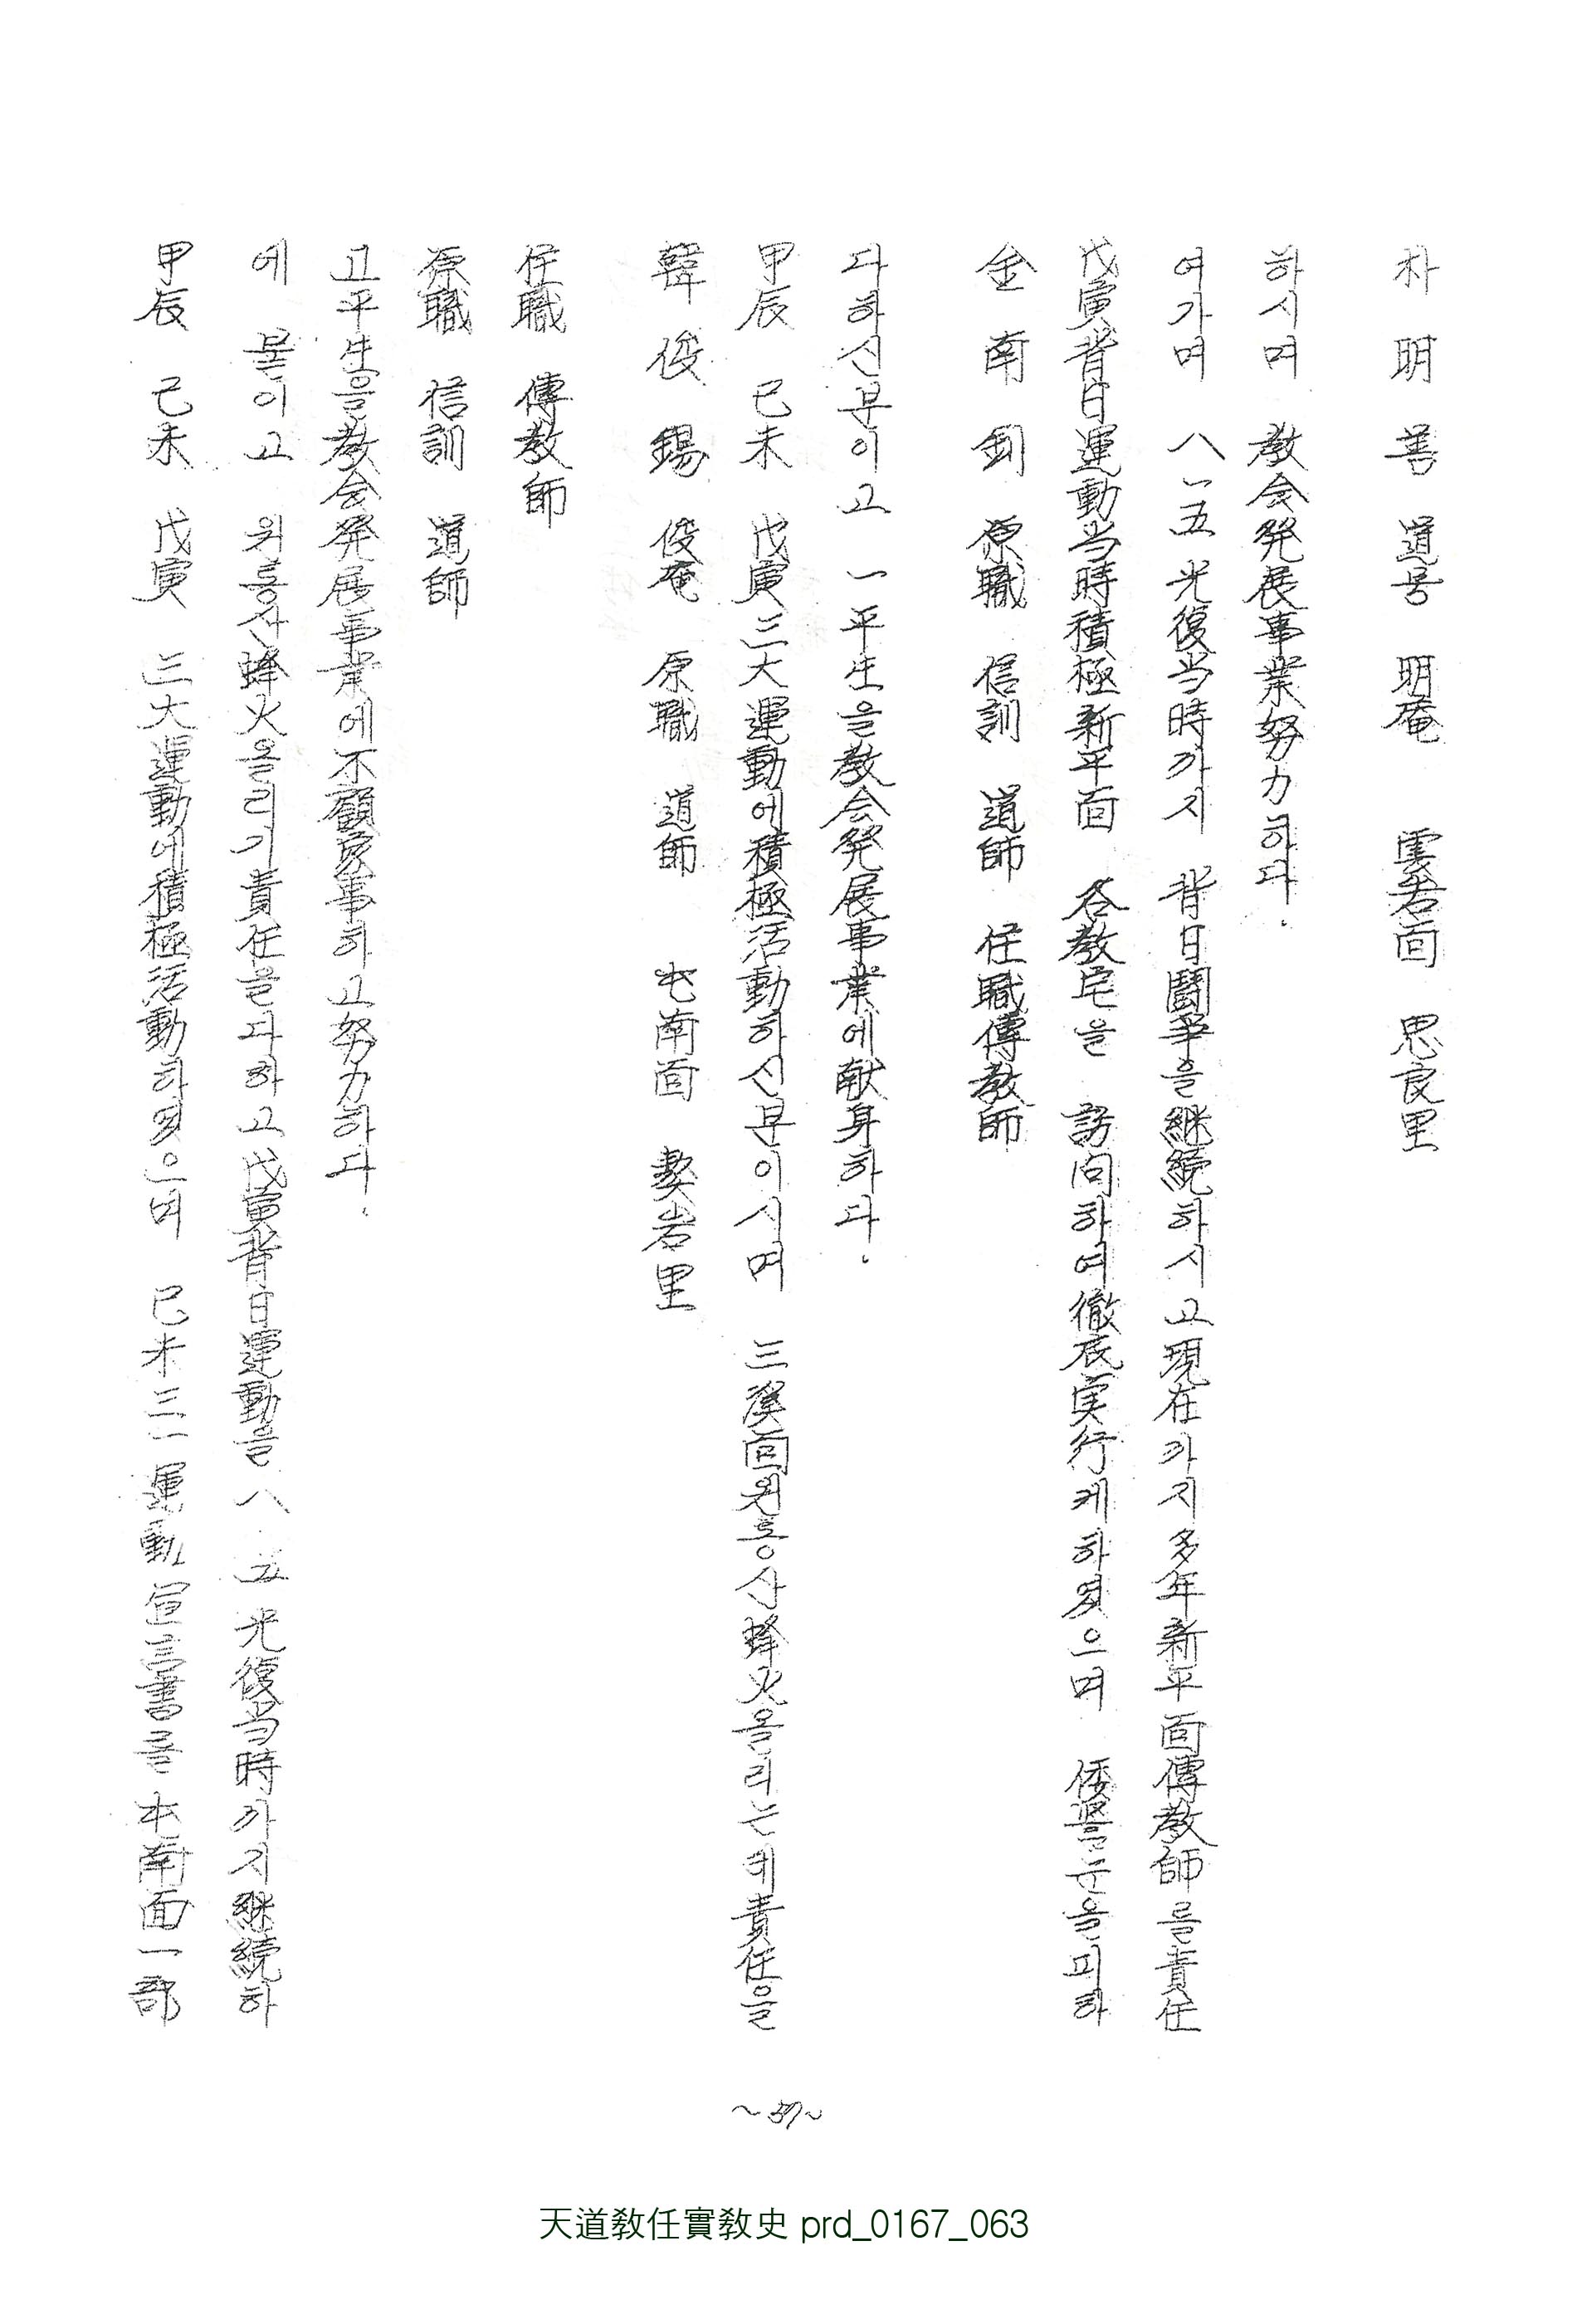 甲辰 己未 戊寅 三大運動에積極活動하였으며 己未三一運動宣言書를屯南面一部
에 돌이고 원흥산蜂火올리기責任을다하고戊寅背日運動을八·一五光復当時까지継続하
고平生을教会発展事業에不顧家事하고努力하다.
原職 信訓 道師
任職 傳教師
韓俊錫 俊庵 原職 道師 屯南面 獒岩里
甲辰 己未 戊寅三大運動에積極活動하신분이시며 三溪面원흥산蜂火올리는데責任을
다하신분이고 一平生을教会発展事業에献身하다.
金南釗 原職 信訓 道師 任職傳教師
戊寅背日運動当時積極新平面 各教宅을 訪问하여徹底実行케하였으며 倭놈들눈을피하
여가며 八一五光復当時까지 背日鬪争을継続하시고現在까지多年新平面傳教師를責任
하시며 教会発展事業努力하다.
朴明善 道号 明庵 雲岩面 思良里
~57~
天道敎任實敎史 prd_0167_063